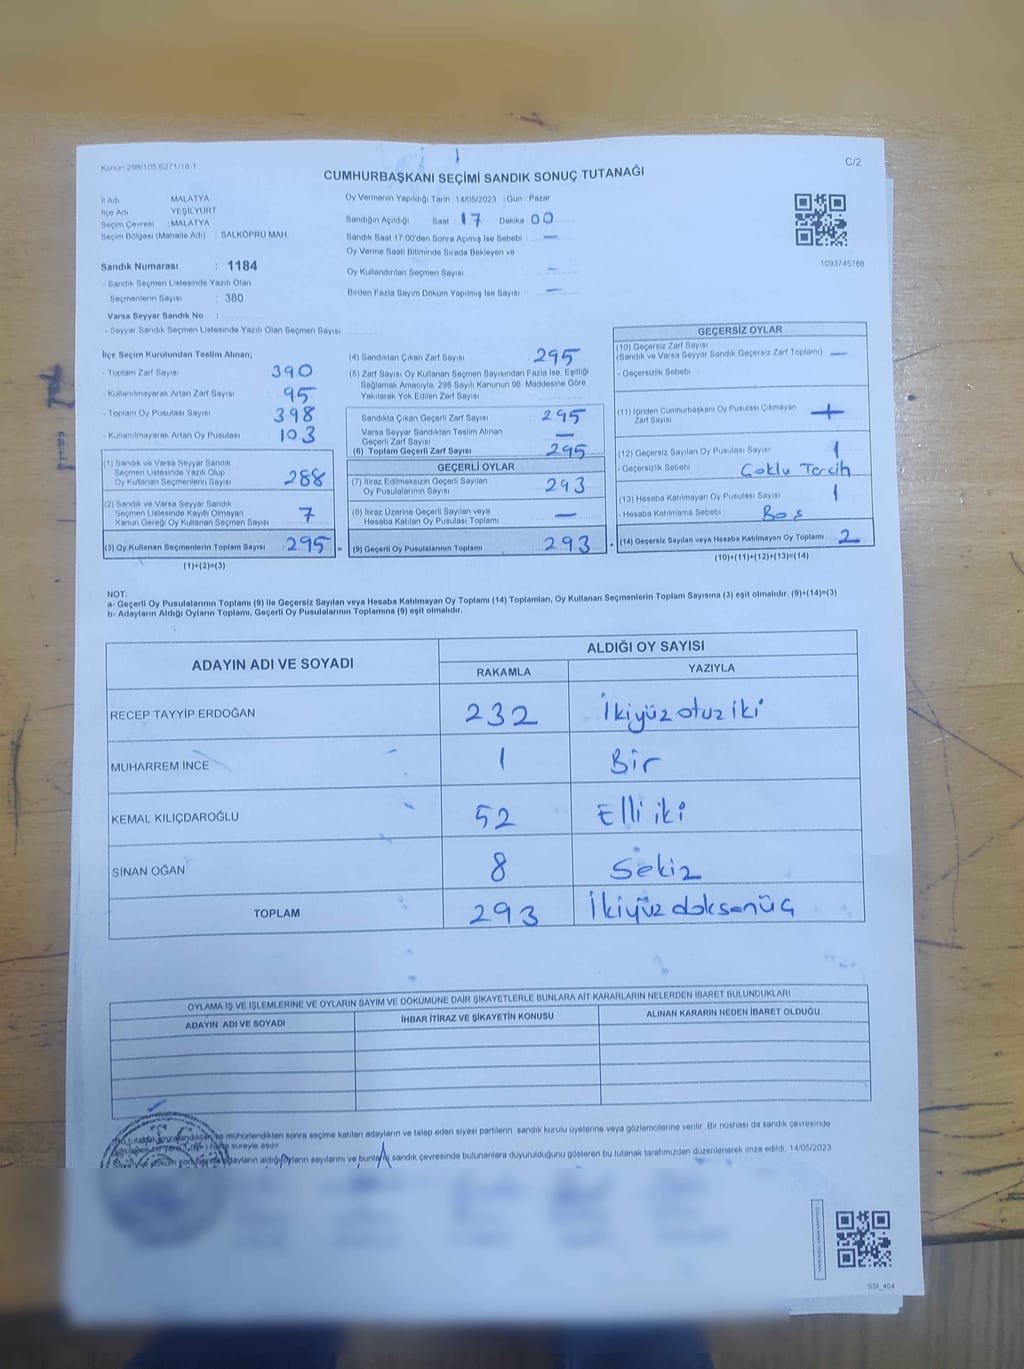 Kanun 298/105.6271/16-1
C/2
CUMHURBAŞKANI SEÇİMİ SANDIK SONUÇ TUTANAĞI
İl Adı MALATYA
İlçe Adı YEŞİLYURT
Seçim Çevresi : MALATYA
Seçim Bölgesi (Mahalle Adı) : SALKÖPRÜ MAH.
Sandık Numarası : 1184
- Sandık Seçmen Listesinde Yazılı Olan
Seçmenlerin Sayısı : 380
Varsa Seyyar Sandık No :
- Seyyar Sandık Seçmen Listesinde Yazılı Olan Seçmen Sayısı
Oy Vermenin Yapıldığı Tarih 14/05/2023 Gün : Pazar
Sandığın Açıldığı Saat 17 Dakika 00
Sandık Saat 17.00'den Sonra Açılmış İse Sebebi : —
Oy Verme Saati Bitiminde Sırada Bekleyen ve
Oy Kullandırılan Seçmen Sayısı : —
Birden Fazla Sayım Döküm Yapılmış İse Sayısı : —
1093745786
İlçe Seçim Kurulundan Teslim Alınan;
- Toplam Zarf Sayısı 390
- Kullanılmayarak Artan Zarf Sayısı 95
- Toplam Oy Pusulası Sayısı 398
- Kullanılmayarak Artan Oy Pusulası 103
(1) Sandık ve Varsa Seyyar Sandık
Seçmen Listesinde Yazılı Olup
Oy Kullanan Seçmenlerin Sayısı 288
(2) Sandık ve Varsa Seyyar Sandık
Seçmen Listesinde Kayıtlı Olmayan
Kanun Gereği Oy Kullanan Seçmen Sayısı 7
(3) Oy Kullanan Seçmenlerin Toplam Sayısı 295 =
(1)+(2)=(3)
(4) Sandıktan Çıkan Zarf Sayısı 295
(5) Zarf Sayısı Oy Kullanan Seçmen Sayısından Fazla İse, Eşitliği
Sağlamak Amacıyla, 298 Sayılı Kanunun 98. Maddesine Göre
Yakılarak Yok Edilen Zarf Sayısı
Sandıkta Çıkan Geçerli Zarf Sayısı 295
Varsa Seyyar Sandıktan Teslim Alınan
Geçerli Zarf Sayısı —
(6) Toplam Geçerli Zarf Sayısı 295
GEÇERLİ OYLAR
(7) İtiraz Edilmeksizin Geçerli Sayılan
Oy Pusulalarının Sayısı 293
(8) İtiraz Üzerine Geçerli Sayılan veya
Hesaba Katılan Oy Pusulası Toplamı —
(9) Geçerli Oy Pusulalarının Toplamı 293 +
GEÇERSİZ OYLAR
(10) Geçersiz Zarf Sayısı
(Sandık ve Varsa Seyyar Sandık Geçersiz Zarf Toplamı) —
- Geçersizlik Sebebi :
(11) İçinden Cumhurbaşkanı Oy Pusulası Çıkmayan
Zarf Sayısı
(12) Geçersiz Sayılan Oy Pusulası Sayısı 1
- Geçersizlik Sebebi : Çoklu Tercih
(13) Hesaba Katılmayan Oy Pusulası Sayısı 1
- Hesaba Katılmama Sebebi : Boş
(14) Geçersiz Sayılan veya Hesaba Katılmayan Oy Toplamı 2
(10)+(11)+(12)+(13)=(14)
NOT:
a- Geçerli Oy Pusulalarının Toplamı (9) ile Geçersiz Sayılan veya Hesaba Katılmayan Oy Toplamı (14) Toplamları, Oy Kullanan Seçmenlerin Toplam Sayısına (3) eşit olmalıdır. (9)+(14)=(3)
b- Adayların Aldığı Oyların Toplamı, Geçerli Oy Pusulalarının Toplamına (9) eşit olmalıdır.
ADAYIN ADI VE SOYADI ALDIĞI OY SAYISI
RAKAMLA YAZIYLA
RECEP TAYYİP ERDOĞAN 232 İkiyüz otuz iki
MUHARREM İNCE 1 Bir
KEMAL KILIÇDAROĞLU 52 Elli iki
SİNAN OĞAN 8 Sekiz
TOPLAM 293 İkiyüz doksanüç
OYLAMA İŞ VE İŞLEMLERİNE VE OYLARIN SAYIM VE DÖKÜMÜNE DAİR ŞİKAYETLERLE BUNLARA AİT KARARLARIN NELERDEN İBARET BULUNDUKLARI
ADAYIN ADI VE SOYADI İHBAR İTİRAZ VE ŞİKAYETİN KONUSU ALINAN KARARIN NEDEN İBARET OLDUĞU
mühürlendikten sonra seçime katılan adayların ve talep eden siyasi partilerin sandık kurulu üyelerine veya gözlemcilerine verilir. Bir nüshası da sandık çevresinde
süreyle asılır.
adayların aldığı oyların sayılarını ve bunların sandık çevresinde bulunanlara duyurulduğunu gösteren bu tutanak tarafımızdan düzenlenerek imza edildi. 14/05/2023
SSI_404